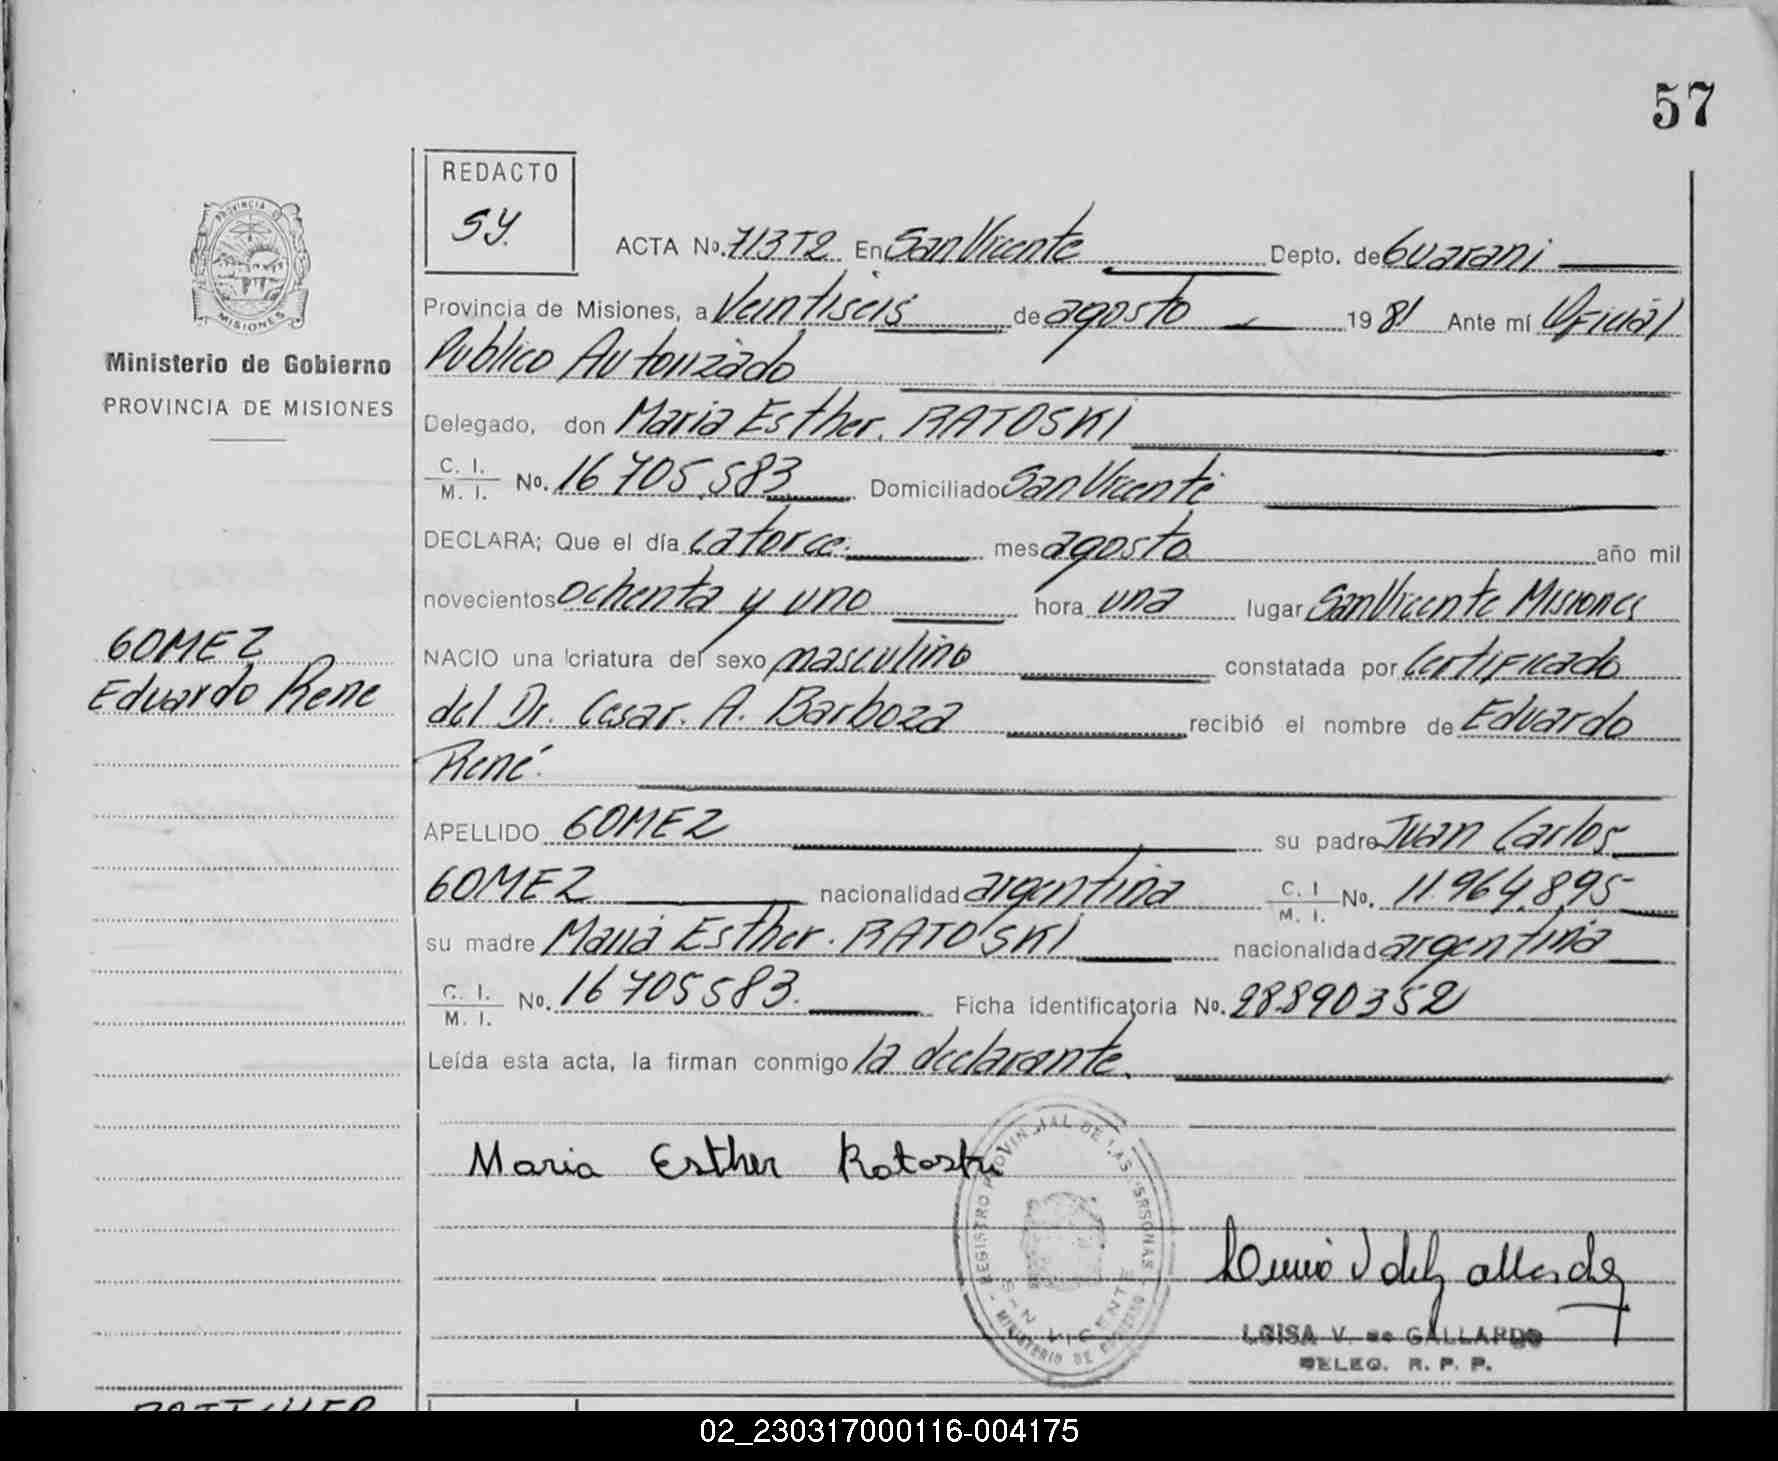 57
REDACTO
SY.
PROVINCIA DE
MISIONES
Ministerio de Gobierno
PROVINCIA DE MISIONES
ACTA No. 713T2 En San Vicente Depto. de Guarani
Provincia de Misiones, a Veintiseis de agosto 1981 Ante mí Oficial
Publico Autorizado
Delegado, don Maria Esther. RATOSKI
C. I. / M. I. No. 16 705.583 Domiciliado San Vicente
DECLARA; Que el día catorce. mes agosto año mil
novecientos ochenta y uno hora una lugar San Vicente Misiones
GOMEZ
Eduardo Rene
NACIO una criatura del sexo masculino constatada por Certificado
del Dr. Cesar. A. Barboza recibió el nombre de Eduardo
René.
APELLIDO GOMEZ su padre Juan Carlos
GOMEZ nacionalidad argentina C. I / M. I. No. 11.964.895
su madre Maria Esther. RATOSKI nacionalidad argentina
C. I. / M. I. No. 16 705 583. Ficha identificatoria No. 28.890352
Leída esta acta, la firman conmigo la declarante.
Maria Esther Ratoski
REGISTRO PROVINCIAL DE LAS PERSONAS
SAN VICENTE
MINISTERIO DE GOBIERNO
LUISA V. de GALLARDO
DELEG. R. P. P.
02_230317000116-004175